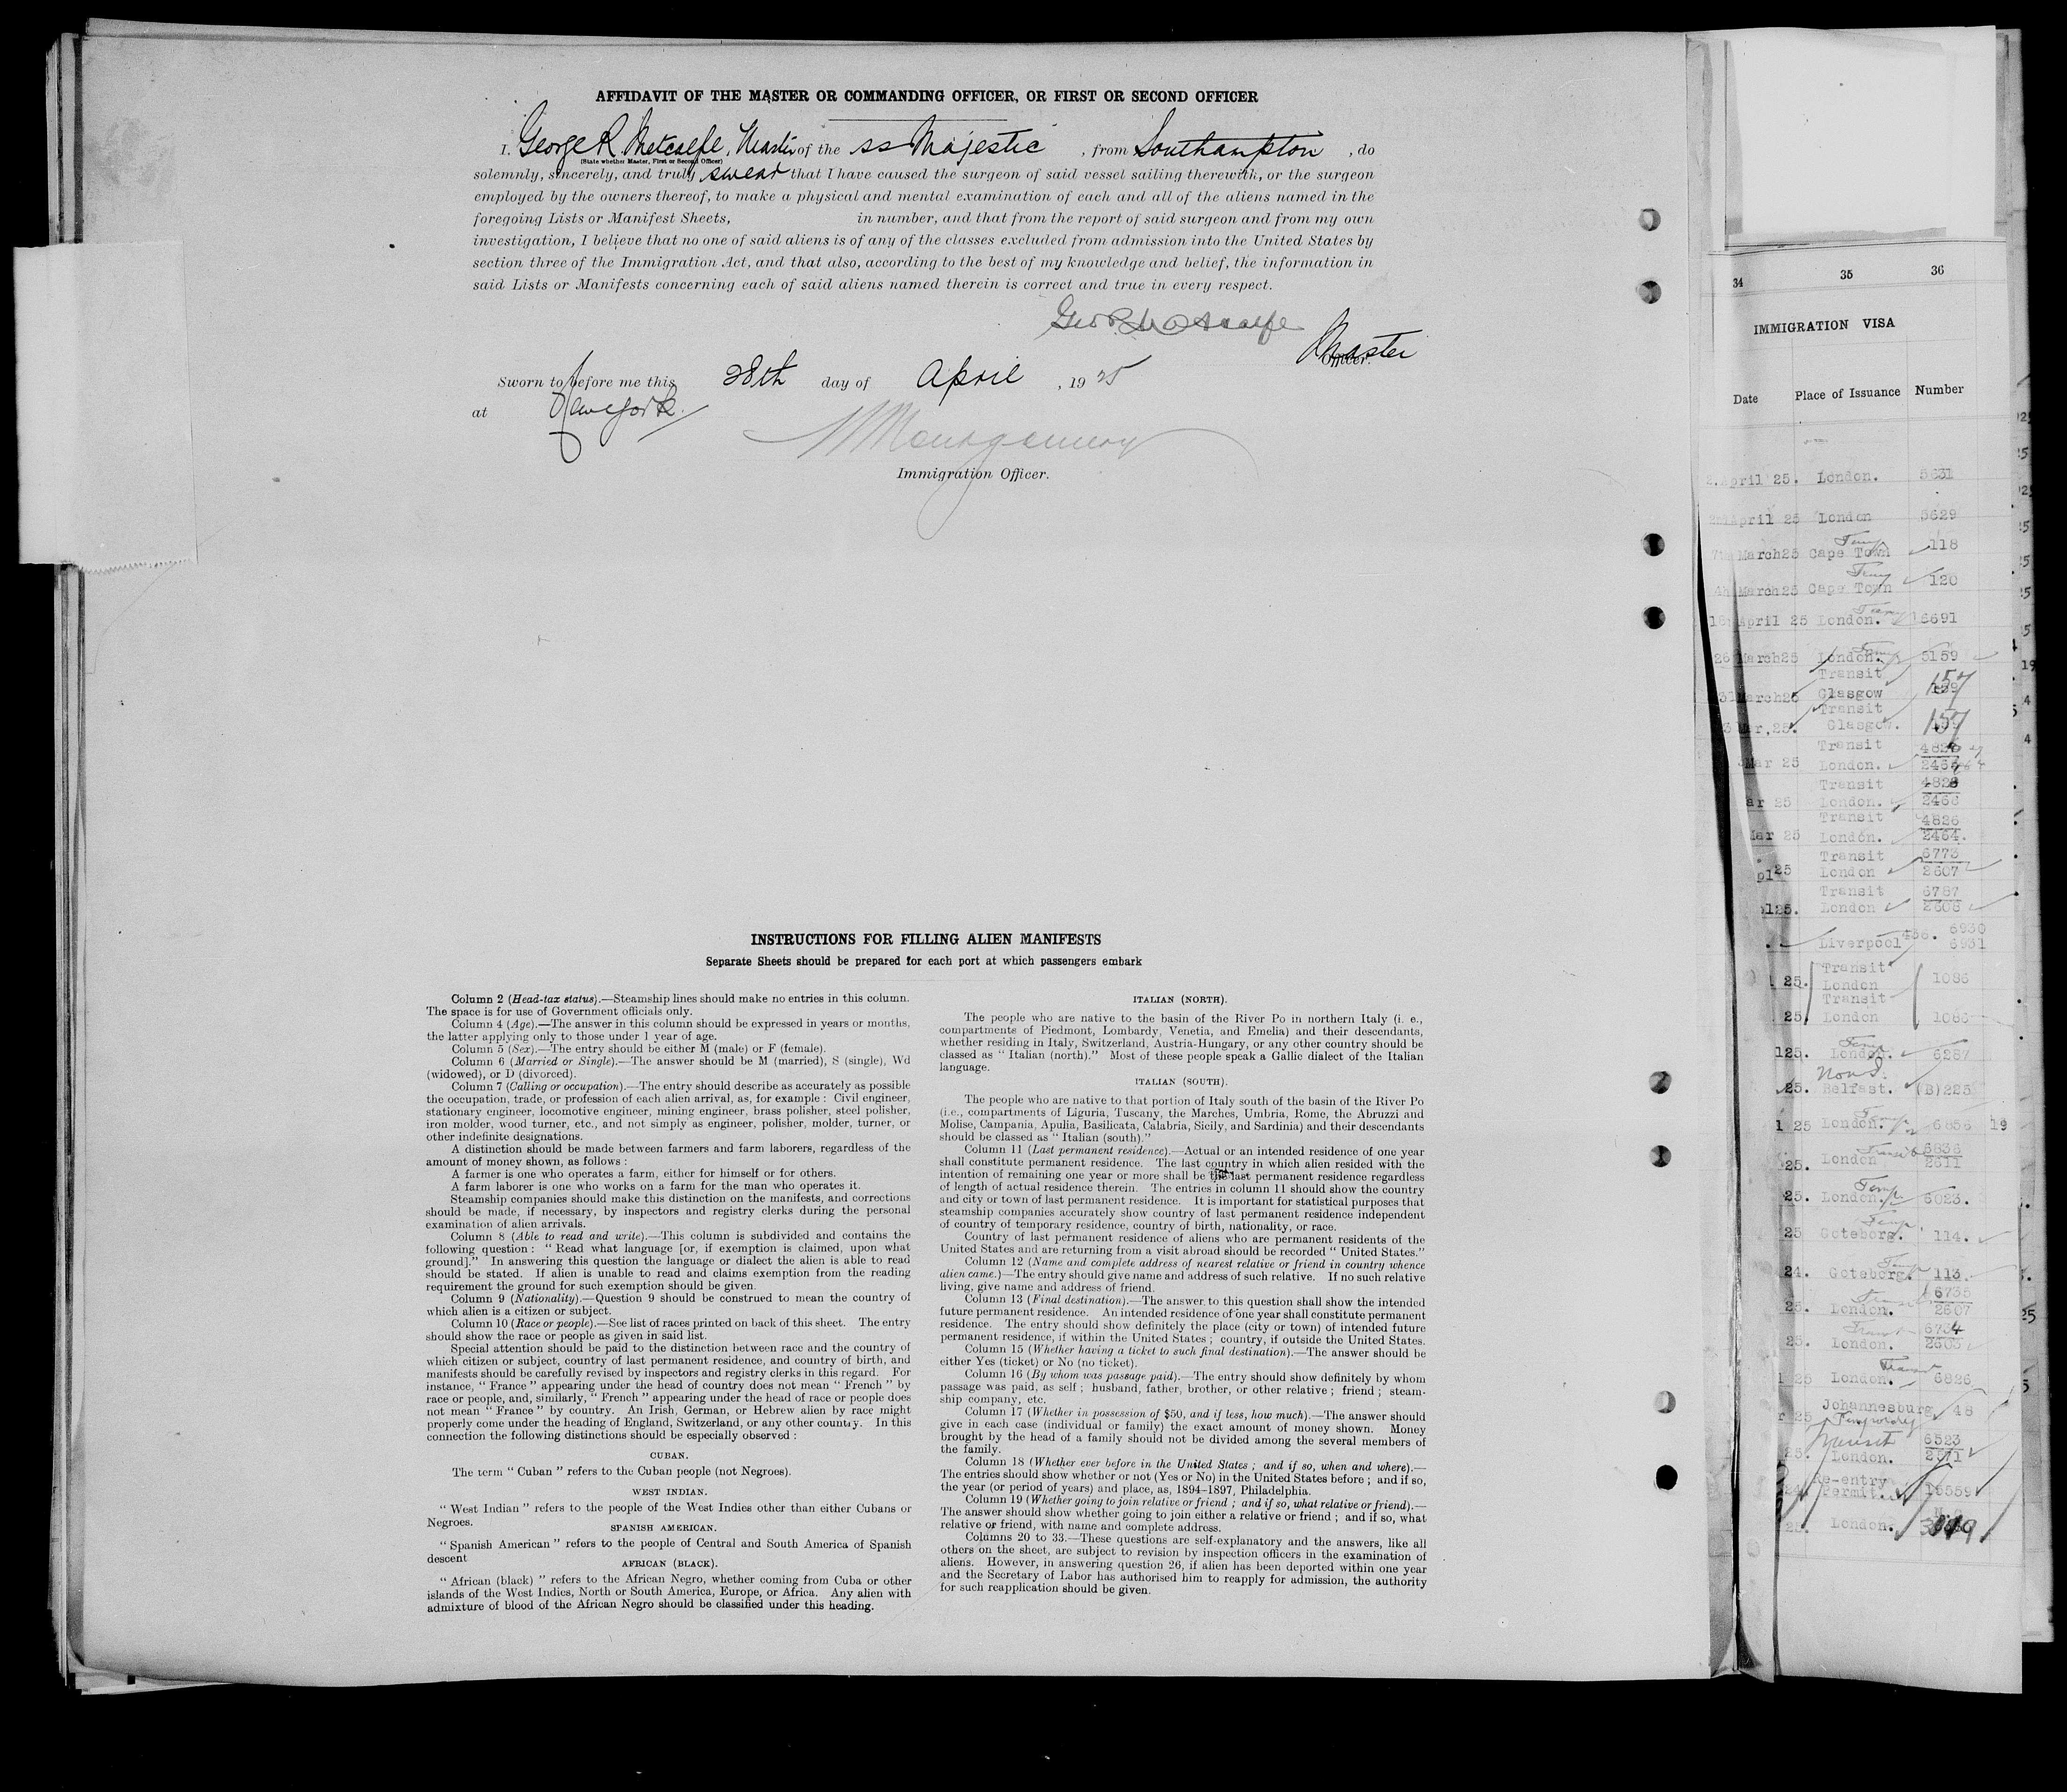 AFFIDAVIT OF THE MASTER OR COMMANDING OFFICER, OR FIRST OR SECOND OFFICER
I, George R. Metcalfe, Master of the ss Majestic , from Southampton , do
(State whether Master, First or Second Officer)
solemnly, sincerely, and truly swear that I have caused the surgeon of said vessel sailing therewith, or the surgeon
employed by the owners thereof, to make a physical and mental examination of each and all of the aliens named in the
foregoing Lists or Manifest Sheets, in number, and that from the report of said surgeon and from my own
investigation, I believe that no one of said aliens is of any of the classes excluded from admission into the United States by
section three of the Immigration Act, and that also, according to the best of my knowledge and belief, the information in
said Lists or Manifests concerning each of said aliens named therein is correct and true in every respect.
Geo R Metcalfe
Master
Officer.
Sworn to before me this 28th day of April , 1925
at New York.
Montgomery
Immigration Officer.
INSTRUCTIONS FOR FILLING ALIEN MANIFESTS
Separate Sheets should be prepared for each port at which passengers embark
Column 2 (Head-tax status).—Steamship lines should make no entries in this column.
The space is for use of Government officials only.
Column 4 (Age).—The answer in this column should be expressed in years or months,
the latter applying only to those under 1 year of age.
Column 5 (Sex).—The entry should be either M (male) or F (female).
Column 6 (Married or Single).—The answer should be M (married), S (single), Wd
(widowed), or D (divorced).
Column 7 (Calling or occupation).—The entry should describe as accurately as possible
the occupation, trade, or profession of each alien arrival, as, for example : Civil engineer,
stationary engineer, locomotive engineer, mining engineer, brass polisher, steel polisher,
iron molder, wood turner, etc., and not simply as engineer, polisher, molder, turner, or
other indefinite designations.
A distinction should be made between farmers and farm laborers, regardless of the
amount of money shown, as follows :
A farmer is one who operates a farm, either for himself or for others.
A farm laborer is one who works on a farm for the man who operates it.
Steamship companies should make this distinction on the manifests, and corrections
should be made, if necessary, by inspectors and registry clerks during the personal
examination of alien arrivals.
Column 8 (Able to read and write).—This column is subdivided and contains the
following question : " Read what language [or, if exemption is claimed, upon what
ground]." In answering this question the language or dialect the alien is able to read
should be stated. If alien is unable to read and claims exemption from the reading
requirement the ground for such exemption should be given.
Column 9 (Nationality).—Question 9 should be construed to mean the country of
which alien is a citizen or subject.
Column 10 (Race or people).—See list of races printed on back of this sheet. The entry
should show the race or people as given in said list.
Special attention should be paid to the distinction between race and the country of
which citizen or subject, country of last permanent residence, and country of birth, and
manifests should be carefully revised by inspectors and registry clerks in this regard. For
instance, " France " appearing under the head of country does not mean " French " by
race or people, and, similarly, " French " appearing under the head of race or people does
not mean " France " by country. An Irish, German, or Hebrew alien by race might
properly come under the heading of England, Switzerland, or any other country. In this
connection the following distinctions should be especially observed :
CUBAN.
The term " Cuban " refers to the Cuban people (not Negroes).
WEST INDIAN.
" West Indian " refers to the people of the West Indies other than either Cubans or
Negroes.
SPANISH AMERICAN.
" Spanish American " refers to the people of Central and South America of Spanish
descent
AFRICAN (BLACK).
" African (black) " refers to the African Negro, whether coming from Cuba or other
islands of the West Indies, North or South America, Europe, or Africa. Any alien with
admixture of blood of the African Negro should be classified under this heading.
ITALIAN (NORTH).
The people who are native to the basin of the River Po in northern Italy (i. e.,
compartments of Piedmont, Lombardy, Venetia, and Emelia) and their descendants,
whether residing in Italy, Switzerland, Austria-Hungary, or any other country should be
classed as " Italian (north)." Most of these people speak a Gallic dialect of the Italian
language.
ITALIAN (SOUTH).
The people who are native to that portion of Italy south of the basin of the River Po
(i.e., compartments of Liguria, Tuscany, the Marches, Umbria, Rome, the Abruzzi and
Molise, Campania, Apulia, Basilicata, Calabria, Sicily, and Sardinia) and their descendants
should be classed as " Italian (south)."
Column 11 (Last permanent residence).—Actual or an intended residence of one year
shall constitute permanent residence. The last country in which alien resided with the
intention of remaining one year or more shall be the last permanent residence regardless
of length of actual residence therein. The entries in column 11 should show the country
and city or town of last permanent residence. It is important for statistical purposes that
steamship companies accurately show country of last permanent residence independent
of country of temporary residence, country of birth, nationality, or race.
Country of last permanent residence of aliens who are permanent residents of the
United States and are returning from a visit abroad should be recorded " United States."
Column 12 (Name and complete address of nearest relative or friend in country whence
alien came.)—The entry should give name and address of such relative. If no such relative
living, give name and address of friend.
Column 13 (Final destination).—The answer to this question shall show the intended
future permanent residence. An intended residence of one year shall constitute permanent
residence. The entry should show definitely the place (city or town) of intended future
permanent residence, if within the United States ; country, if outside the United States.
Column 15 (Whether having a ticket to such final destination).—The answer should be
either Yes (ticket) or No (no ticket).
Column 16 (By whom was passage paid).—The entry should show definitely by whom
passage was paid, as self ; husband, father, brother, or other relative ; friend ; steam-
ship company, etc.
Column 17 (Whether in possession of $50, and if less, how much).—The answer should
give in each case (individual or family) the exact amount of money shown. Money
brought by the head of a family should not be divided among the several members of
the family.
Column 18 (Whether ever before in the United States ; and if so, when and where).—
The entries should show whether or not (Yes or No) in the United States before ; and if so,
the year (or period of years) and place, as, 1894–1897, Philadelphia.
Column 19 (Whether going to join relative or friend ; and if so, what relative or friend).—
The answer should show whether going to join either a relative or friend ; and if so, what
relative or friend, with name and complete address.
Columns 20 to 33.—These questions are self-explanatory and the answers, like all
others on the sheet, are subject to revision by inspection officers in the examination of
aliens. However, in answering question 26, if alien has been deported within one year
and the Secretary of Labor has authorised him to reapply for admission, the authority
for such reapplication should be given.
34 35 36
IMMIGRATION VISA
Date Place of Issuance Number
April 25. London. 5631
April 25 London 5629
Temp
March25 Cape Town 118
Temp
March25 Cape Town 120
Temp
April 25 London. 6691
Temp
26 March25 London. 5159
Transit
31 March25 Glasgow 157
Transit
Mar,25. Glasgow. 157
Transit
Mar 25 London.
Transit 4828
ar 25 London. 2466
Transit 4826
Mar 25 London. 2464.
Transit 6773
pl25 London 2607
Transit 6787
l25. London 2608
Liverpool 6930
6931
Transit
25. London 1086
Transit
25. London 1086
Temp
l25. London. 6287
25. Belfast. (B)225
Temp
l 25 London. 6856 19
Transit 6836
25. London 2611
Temp
25. London. 6023.
Temp
25 Goteborg. 114.
Temp
24. Goteborg. 113.
6735
25. London. 2607
Transit 6734
25. London. 2605
Transit
25 London. 6826
Johannesburg 48
25 Temporary
Transit 6523
25. London. 2571
Re-entry
Permit. 16559
London.